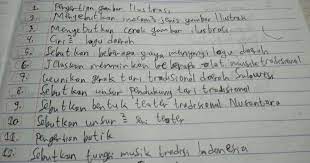 1. Pengertian gambar Ilustrasi
2. Menyebutkan macam2 jenis gambar Ilustrasi
3. Menyebutkan corak gambar ilustrasi
4. Ciri2 lagu daerah
5. Sebutkan beberapa gaya menyanyi lagu daerah
6. Jelaskan memainkan beberapa alat musik tradisional
7. Keunikan gerak tari tradisional daerah Sulawesi
8. Sebutkan unsur pendukung tari tradisional
9. Sebutkan bentuk teater tradisional Nusantara
10. Sebutkan unsur2 teater
11. Pengertian batik
12. Sebutkan fungsi musik tradisi Indonesia